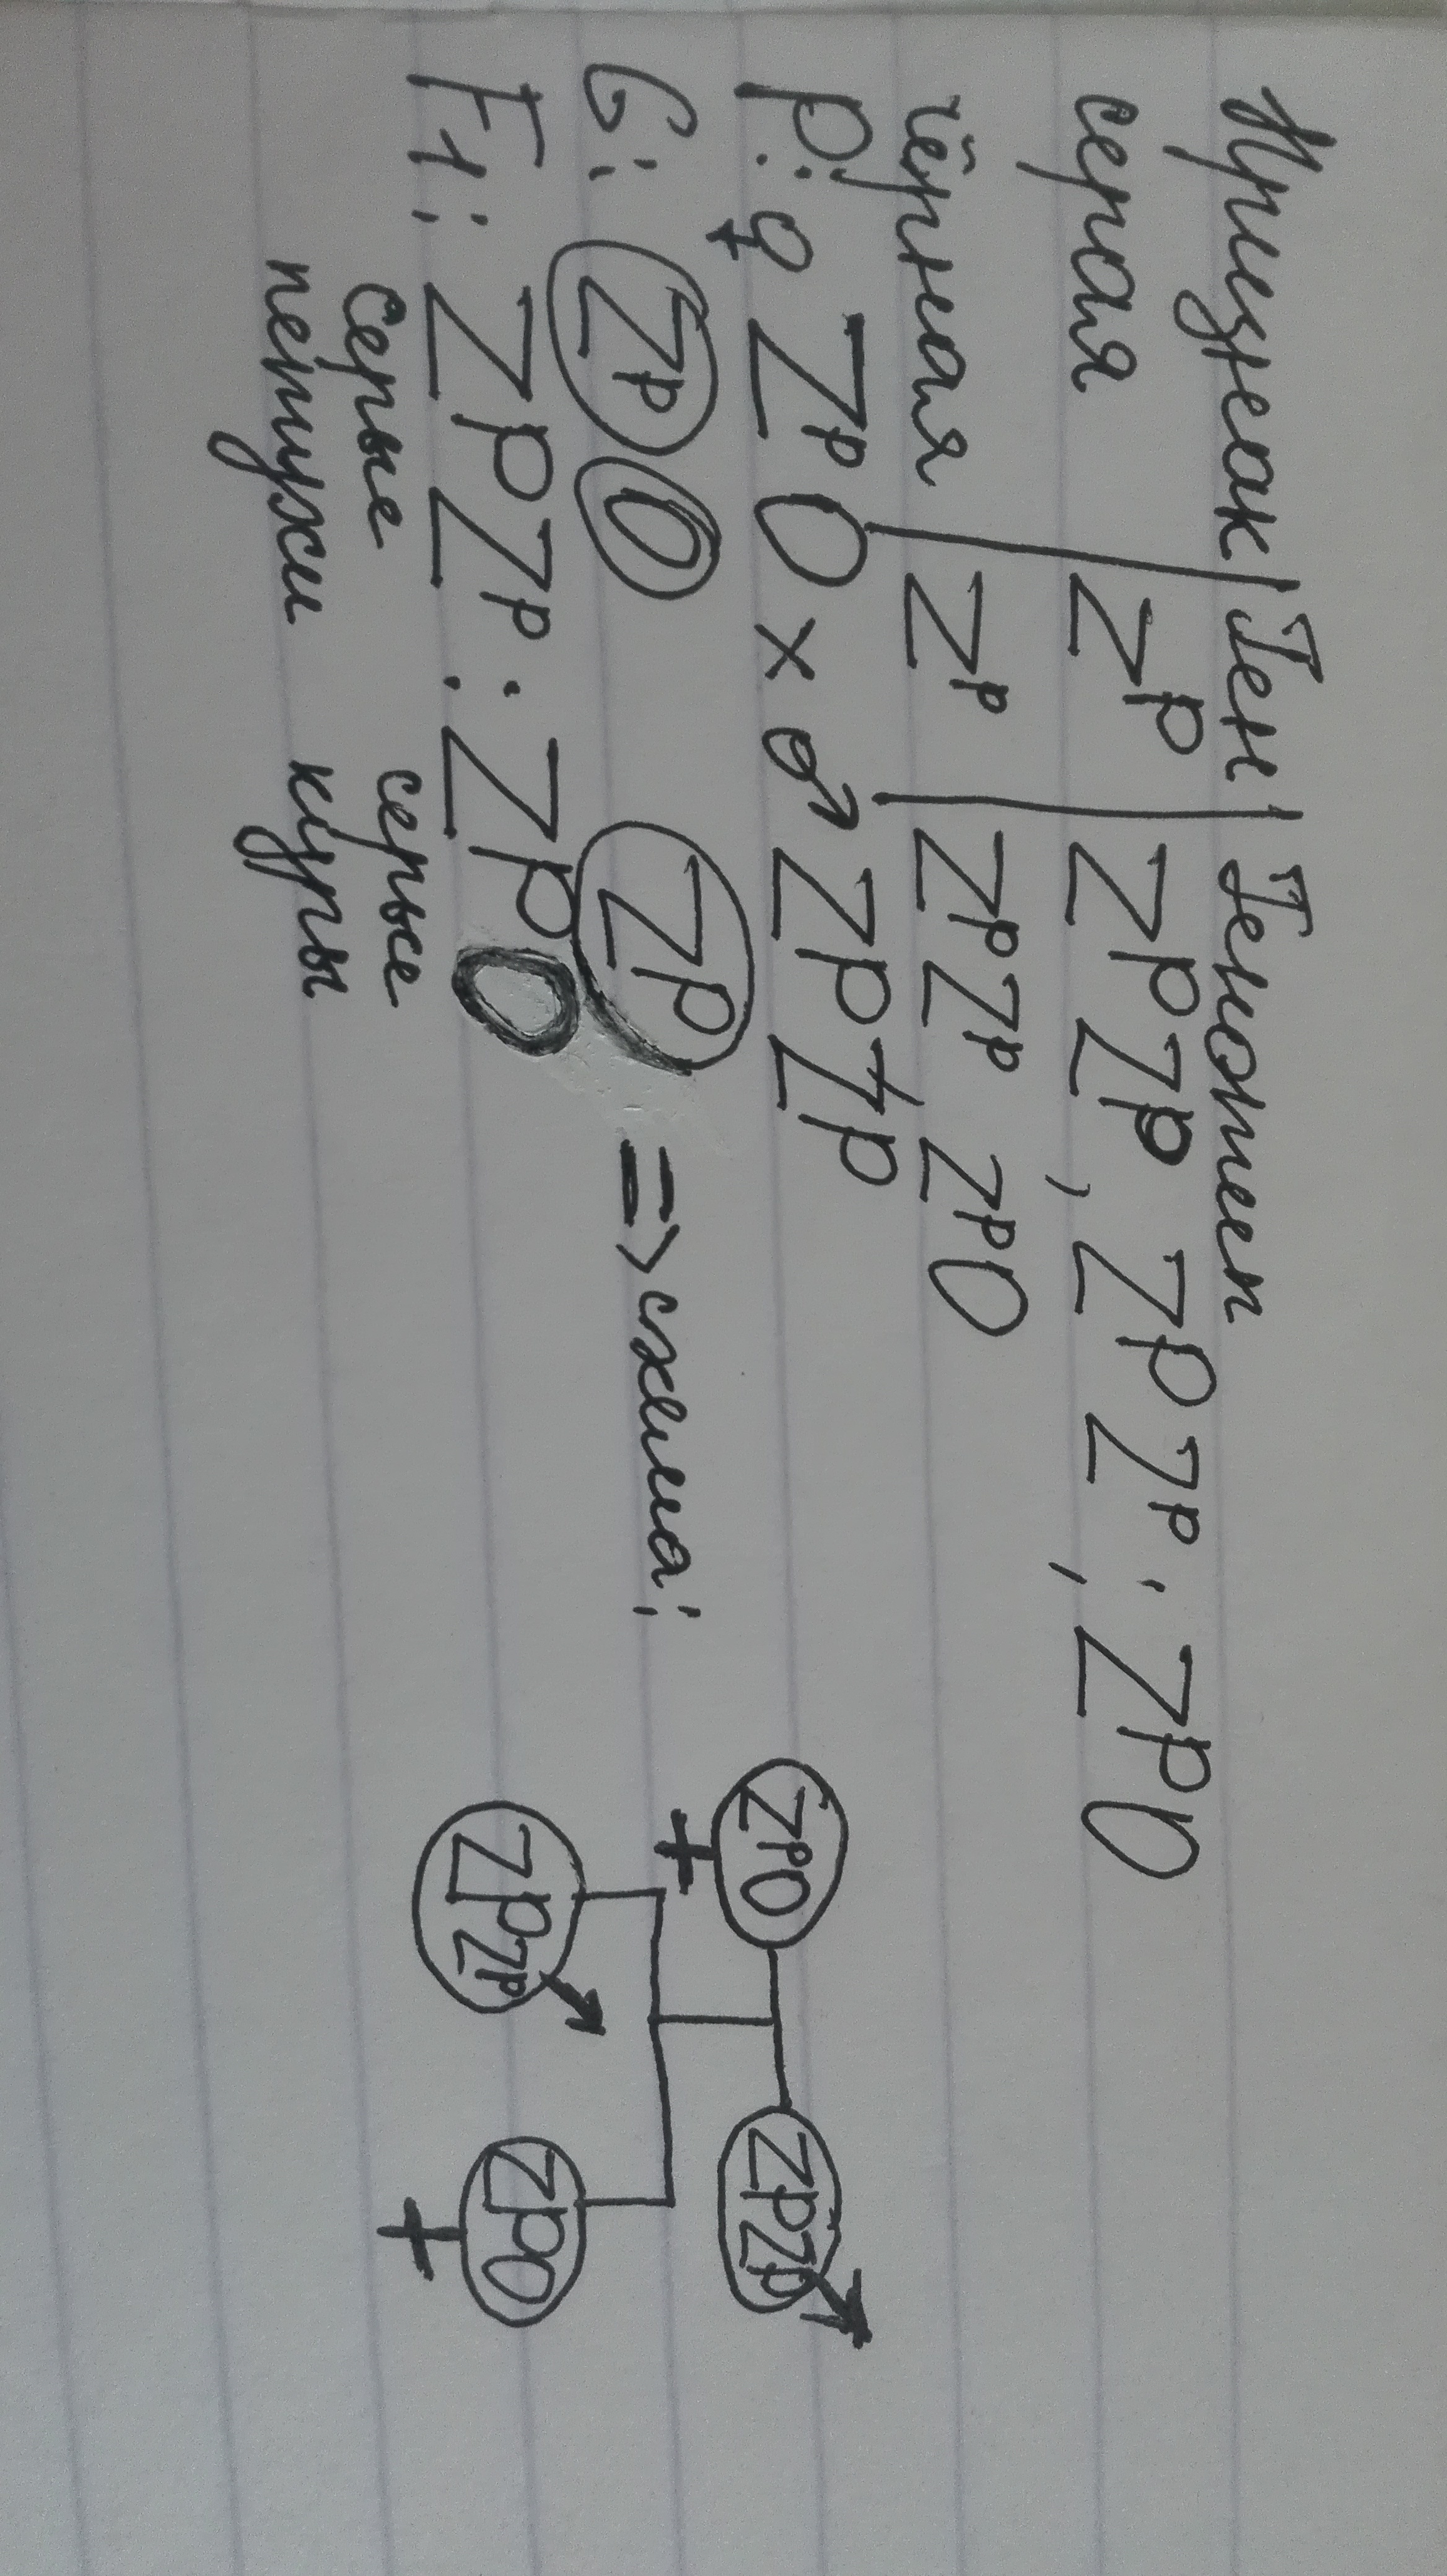 Признак | Ген | Генотип
серая | Zᴾ | ZᴾZᴾ, ZᴾZᵖ, ZᴾO
чёрная | Zᵖ | ZᵖZᵖ ZᵖO
P: ♀ ZᵖO x ♂ ZᴾZᴾ
G: Zᵖ O Zᴾ => схема:
F1: ZᴾZᵖ : ZᴾO
серые серые
петухи куры
ZᵖO ZᴾZᴾ
ZᴾZᵖ ZᴾO